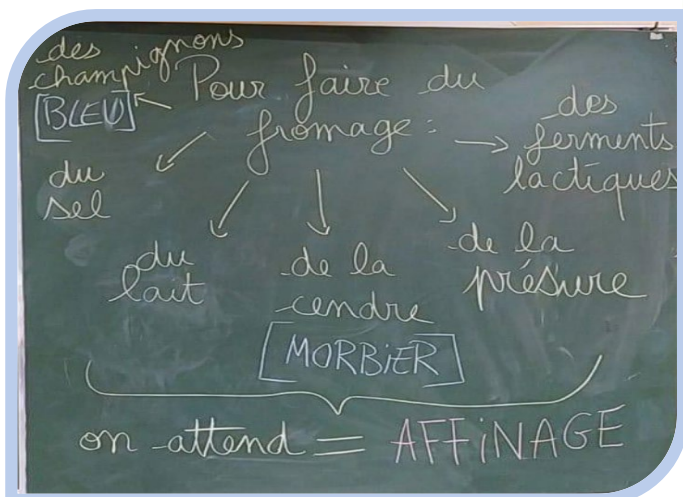 des
champignons
[BLEU]
Pour faire du
fromage :
des
ferments
lactiques
du
sel
du
lait
de la
cendre
[MORBiER]
de la
présure
on attend = AFFiNAGE